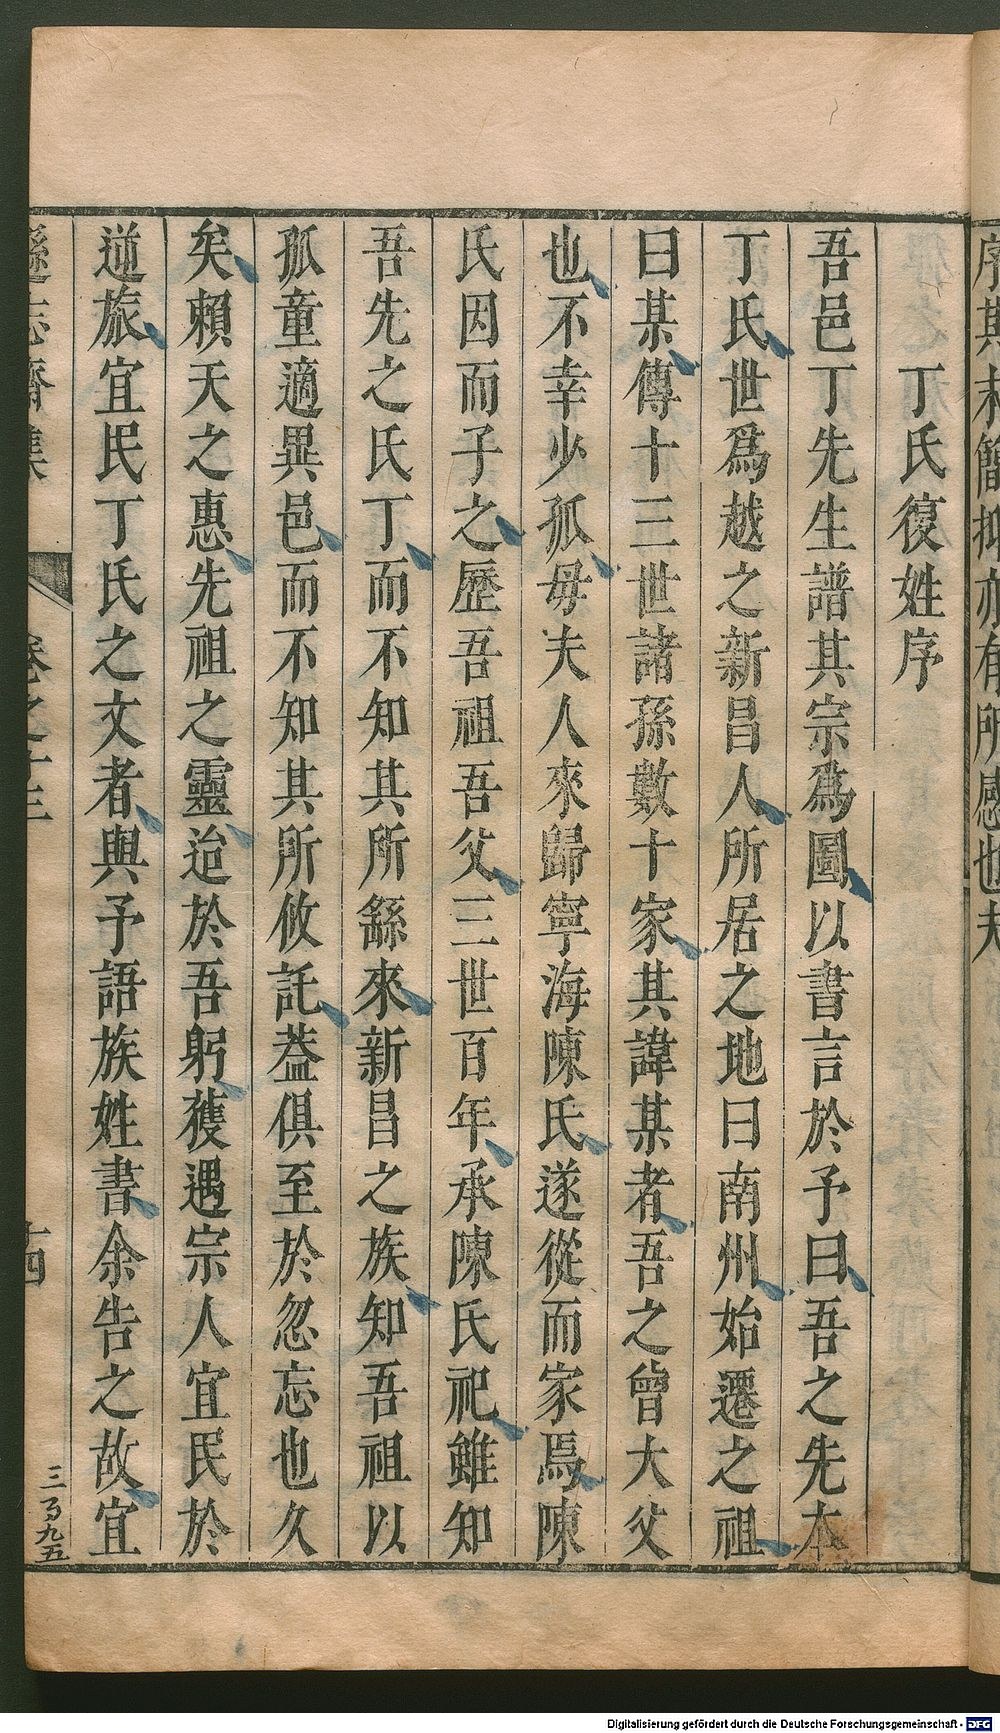 序其末簡抑亦有所感也夫
丁氏復姓序
吾邑丁先生譜其宗爲圖以書言於予曰吾之先本
丁氏世爲越之新昌人所居之地曰南州始遷之祖
曰某傳十三世諸孫數十家其諱某者吾之曾大父
也不幸少孤毋夫人來歸寧海陳氏遂從而家焉陳
氏因而子之歷吾祖吾父三世百年承陳氏祀雖知
吾先之氏丁而不知其所繇來新昌之族知吾祖以
孤童適異邑而不知其所攸託葢俱至於忽忘也久
矣賴天之惠先祖之靈迨於吾躬獲遇宗人宜民於
逆旅宜民丁氏之文者與予語族姓書余告之故宜
遜志齋集
卷之十三
十四
三百九五
Digitalisierung gefördert durch die Deutsche Forschungsgemeinschaft - DFG